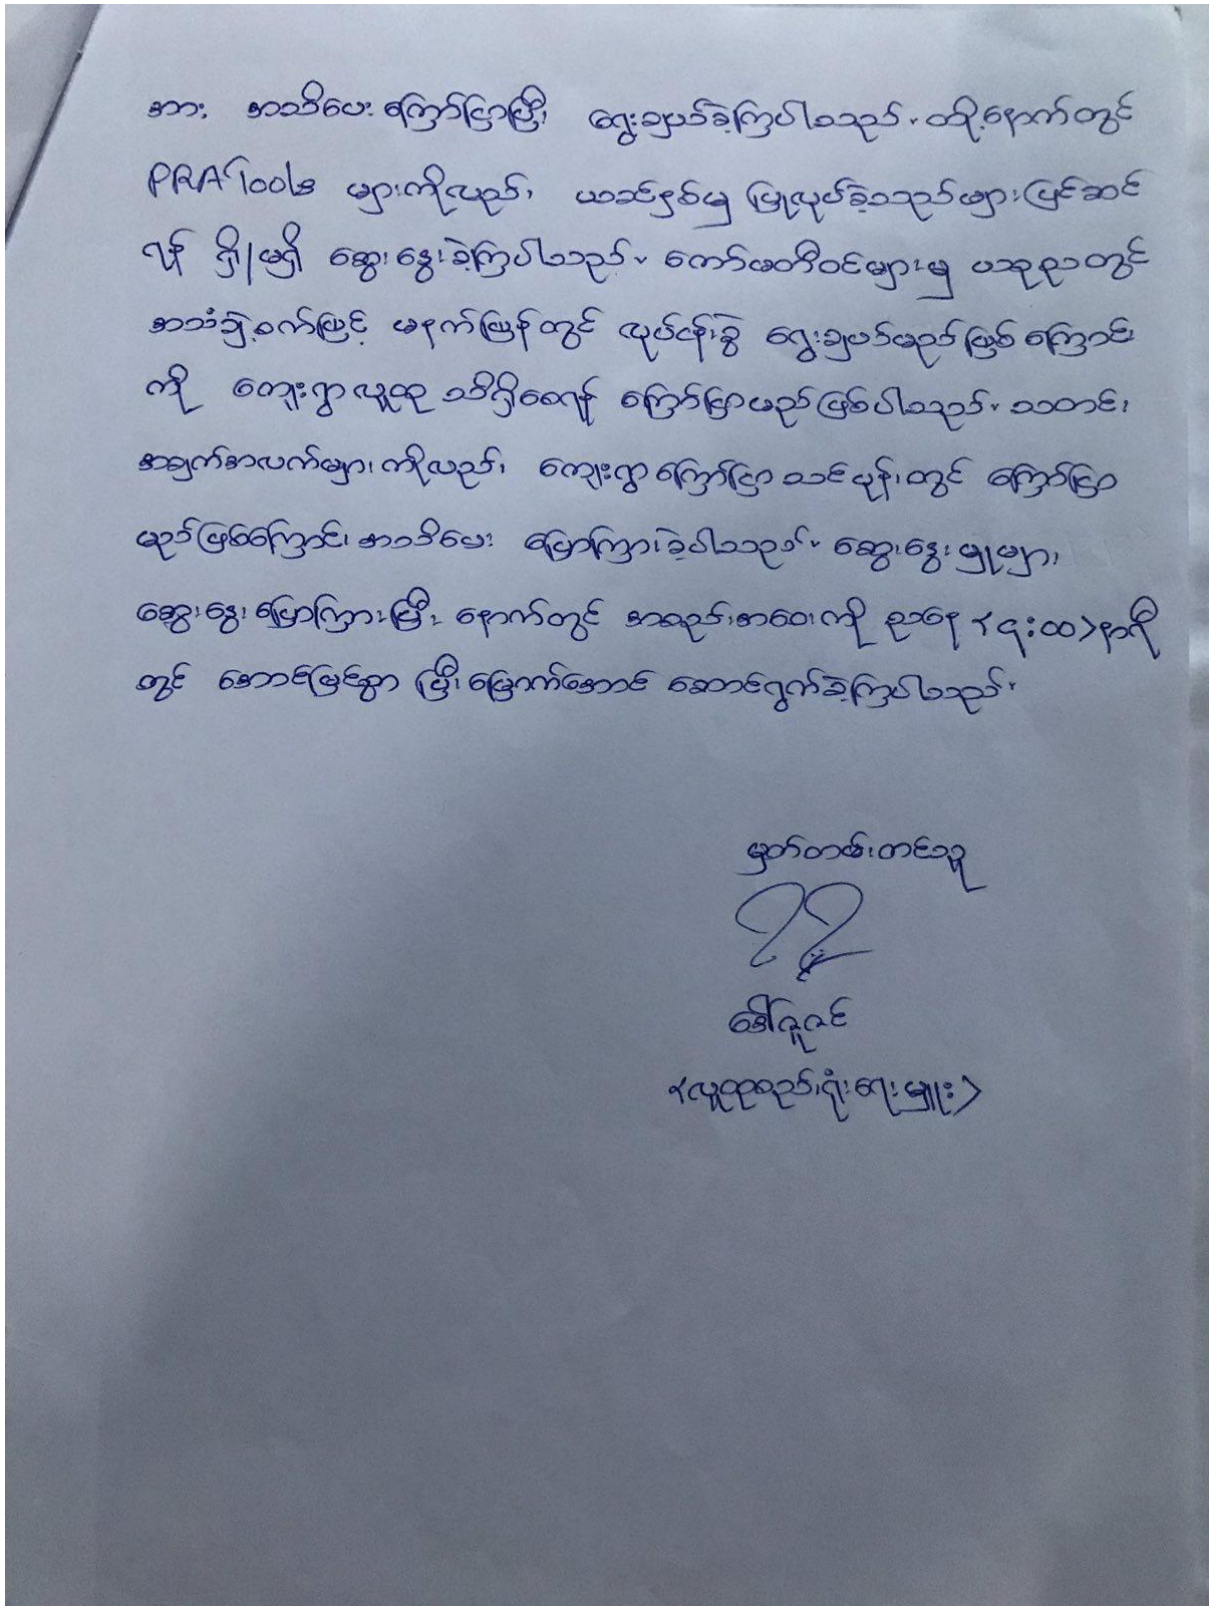 အား အသိပေး ကြော်ငြာပြီး ရွေးချယ်ခဲ့ကြပါသည်။ ထို့နောက်တွင်
PRA Tools များကိုလည်း ယခင်နှစ်မှ ပြုလုပ်ခဲ့သည်များပြင်ဆင်
ရန် ရှိ/မရှိ ဆွေးနွေးခဲ့ကြပါသည်။ ကော်မတီဝင်များမှ ယခုညတွင်
အသံချဲ့စက်ဖြင့် မနက်ဖြန်တွင် လုပ်ငန်းခွဲ ရွေးချယ်မည်ဖြစ်ကြောင်း
ကို ကျေးရွာလူထု သိရှိစေရန် ကြော်ငြာမည်ဖြစ်ပါသည်။ သတင်း
အချက်အလက်များကိုလည်း ကျေးရွာကြော်ငြာ သင်ပုန်းတွင် ကြော်ငြာ
မည်ဖြစ်ကြောင်း အသိပေး ပြောကြားခဲ့ပါသည်။ ဆွေးနွေးမှုများ
ဆွေးနွေးပြောကြားပြီး နောက်တွင် အစည်းအဝေးကို ညနေ (၄:၀၀)နာရီ
တွင် အောင်မြင်စွာ ပြီးမြောက်အောင် ဆောင်ရွက်ခဲ့ကြပါသည်။
မှတ်တမ်းတင်သူ
ဒေါ်ဇူဇင်
(လူထုစည်းရုံးရေးမှူး)